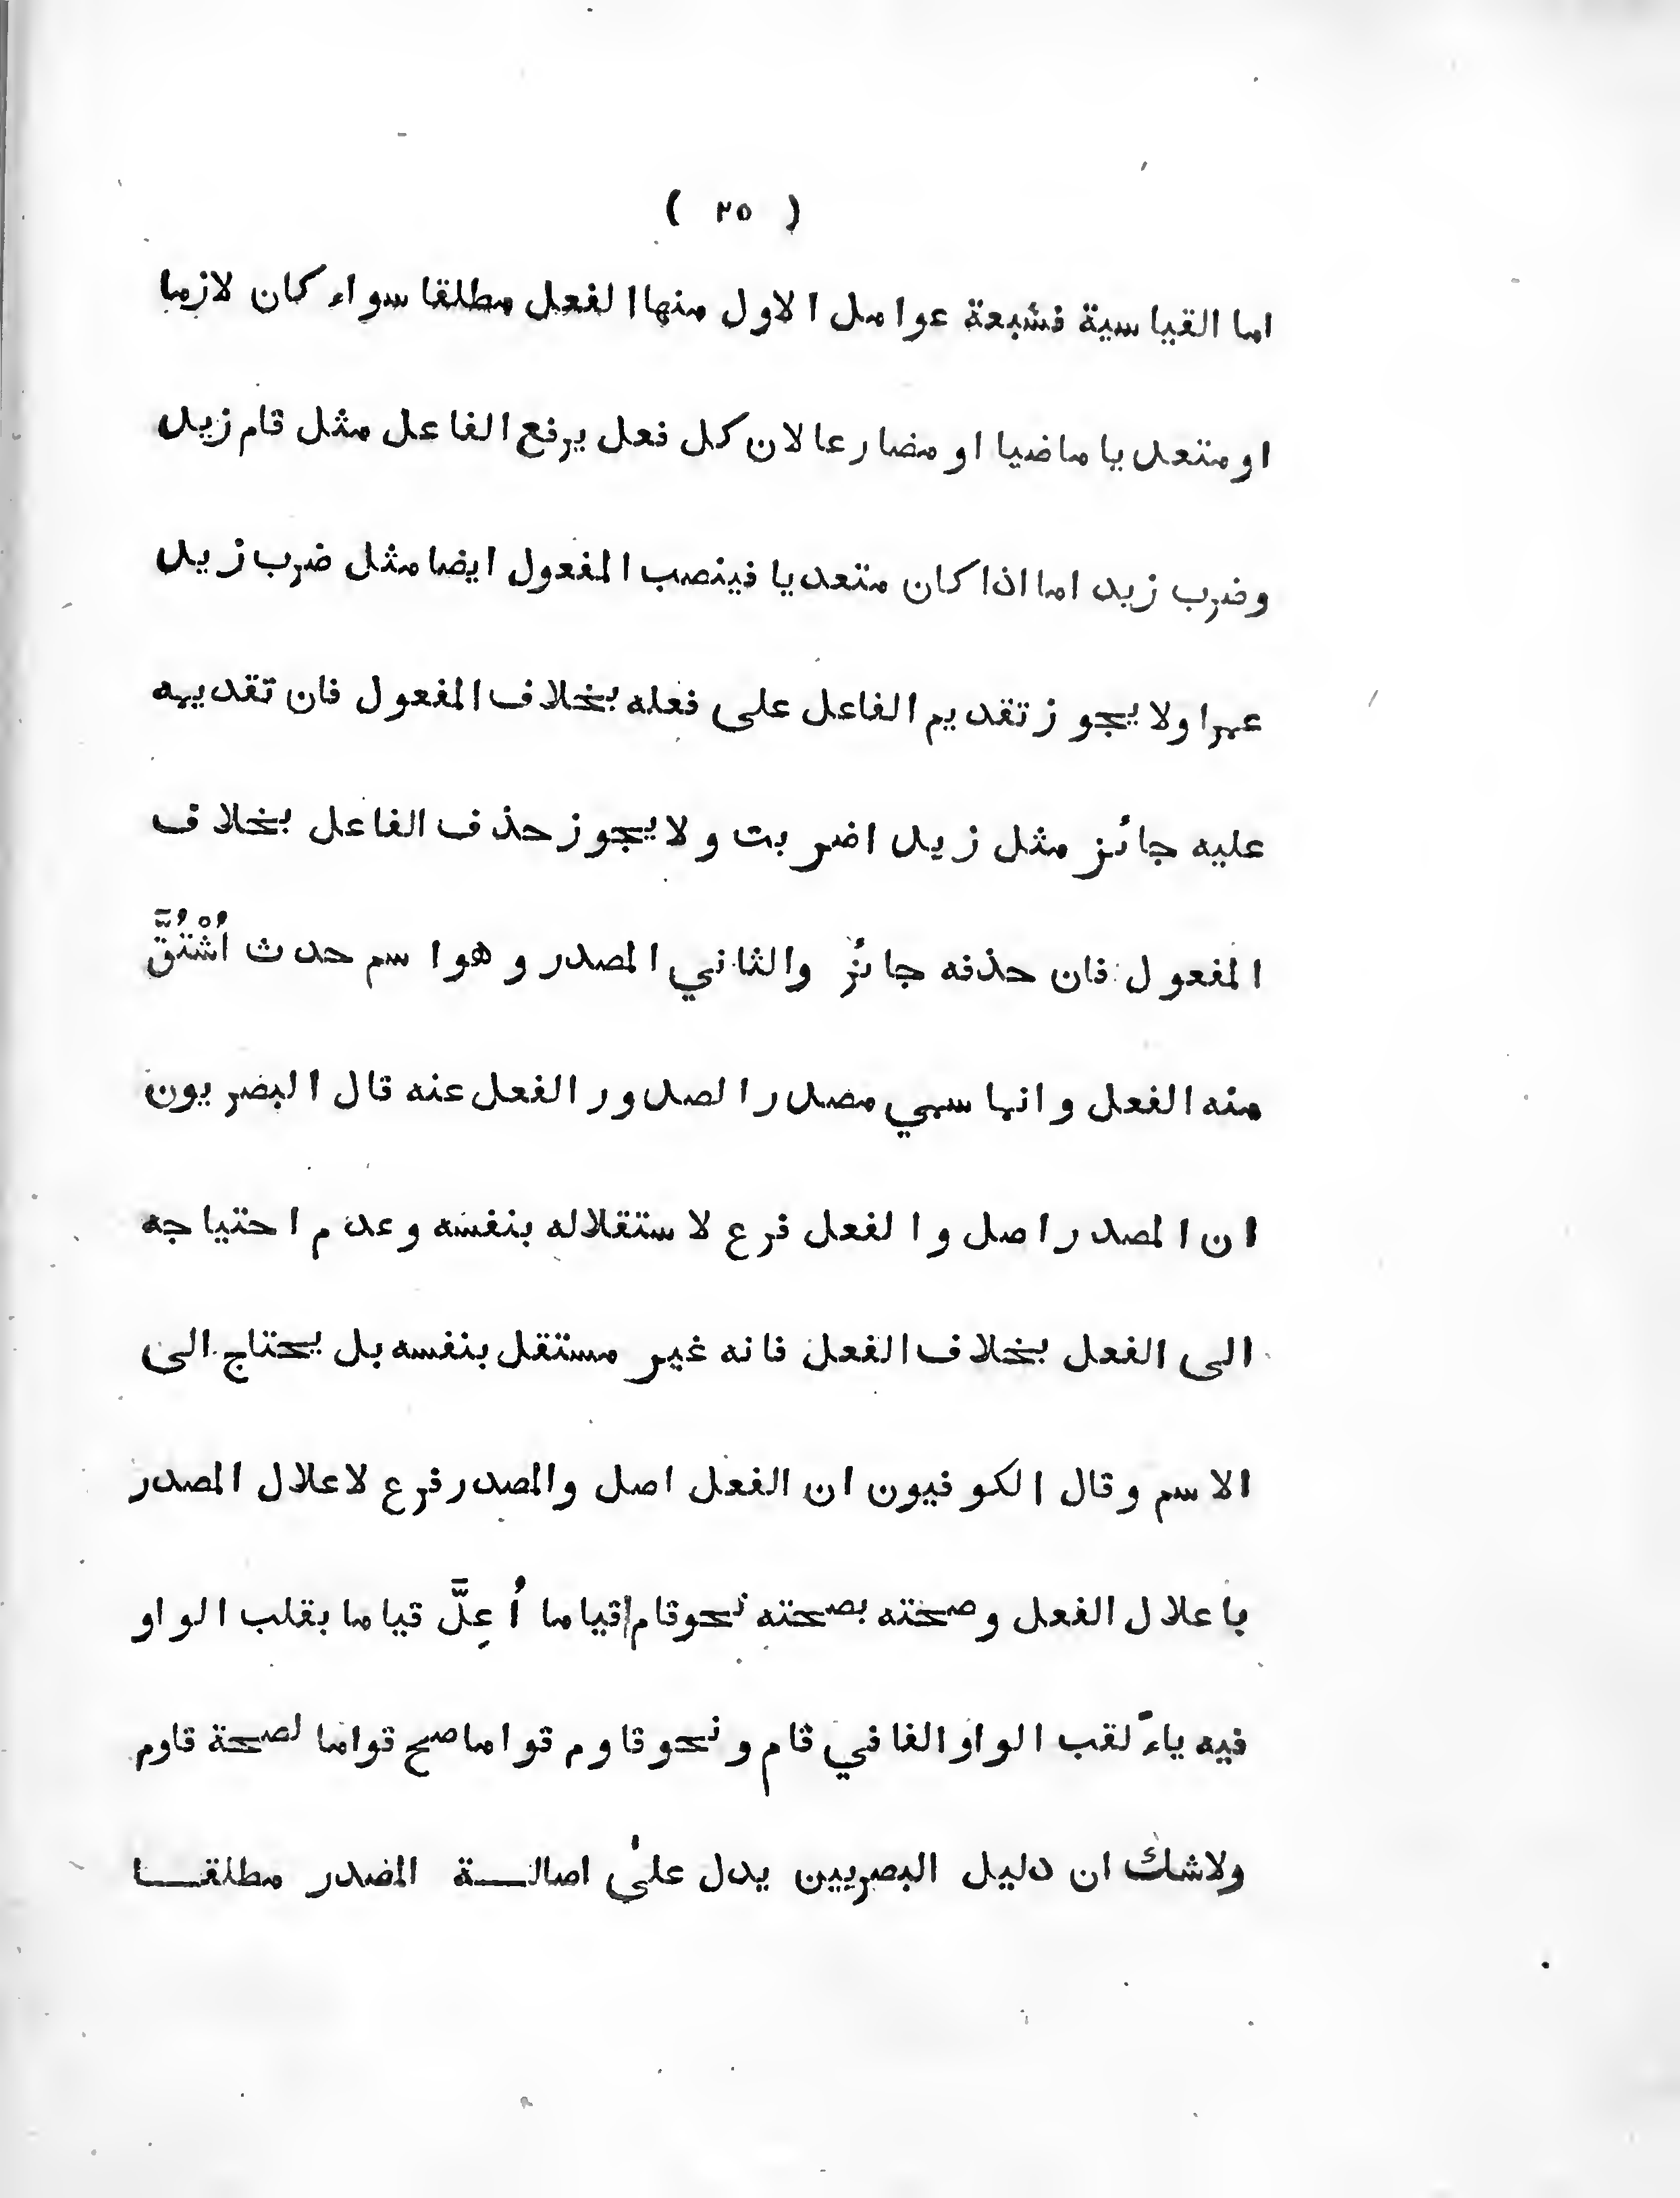 ( ٢٥ )
اما القياسية فسبعة عوامل الاول منها الفعل مطلقا سواء كان لازما
او متعديا ماضيا او مضارعا لان كل فعل يرفع الفاعل مثل قام زيد
وضرب زيد اما اذا كان متعديا فينصب المفعول ايضا مثل ضرب زيد
عمرا ولا يجوز تقديم الفاعل على فعله بخلاف المفعول فان تقديمه
عليه جائز مثل زيدا ضربت ولا يجوز حذف الفاعل بخلاف
المفعول فان حذفه جائز والثاني المصدر وهو اسم حدث اُشْتُقَّ
منه الفعل وانما سمي مصدرا لصدور الفعل عنه قال البصريون
ان المصدر اصل والفعل فرع لاستقلاله بنفسه وعدم احتياجه
الى الفعل بخلاف الفعل فانه غير مستقل بنفسه بل يحتاج الى
الاسم وقال الكوفيون ان الفعل اصل والمصدر فرع لاعلال المصدر
باعلال الفعل وصحته بصحته نحو قام قياما اُعِلَّ قياما بقلب الواو
فيه ياءً لقب الواو الفا في قام ونحو قاوم قواما صح قواما لصحة قاوم
ولاشك ان دليل البصريين يدل على اصالة المصدر مطلقا